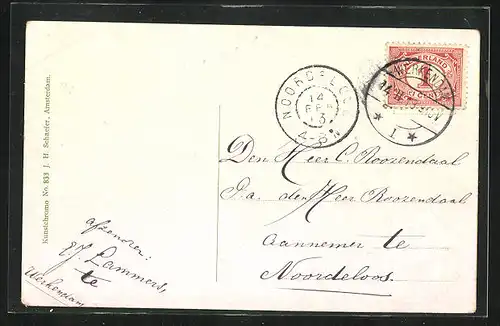 Kunstchromo No. 833 J. H. Schaefer, Amsterdam.
NOORDELOOS
14
FEB
13
4-8 N
NEDERLAND
1
CENT
WERKENDAM
14
1
Den Heer C. Roozendaal
P.a. den Heer Roozendaal
Aannemer te
Noordeloos.
afzender:
Lammers,
te
Werkendam